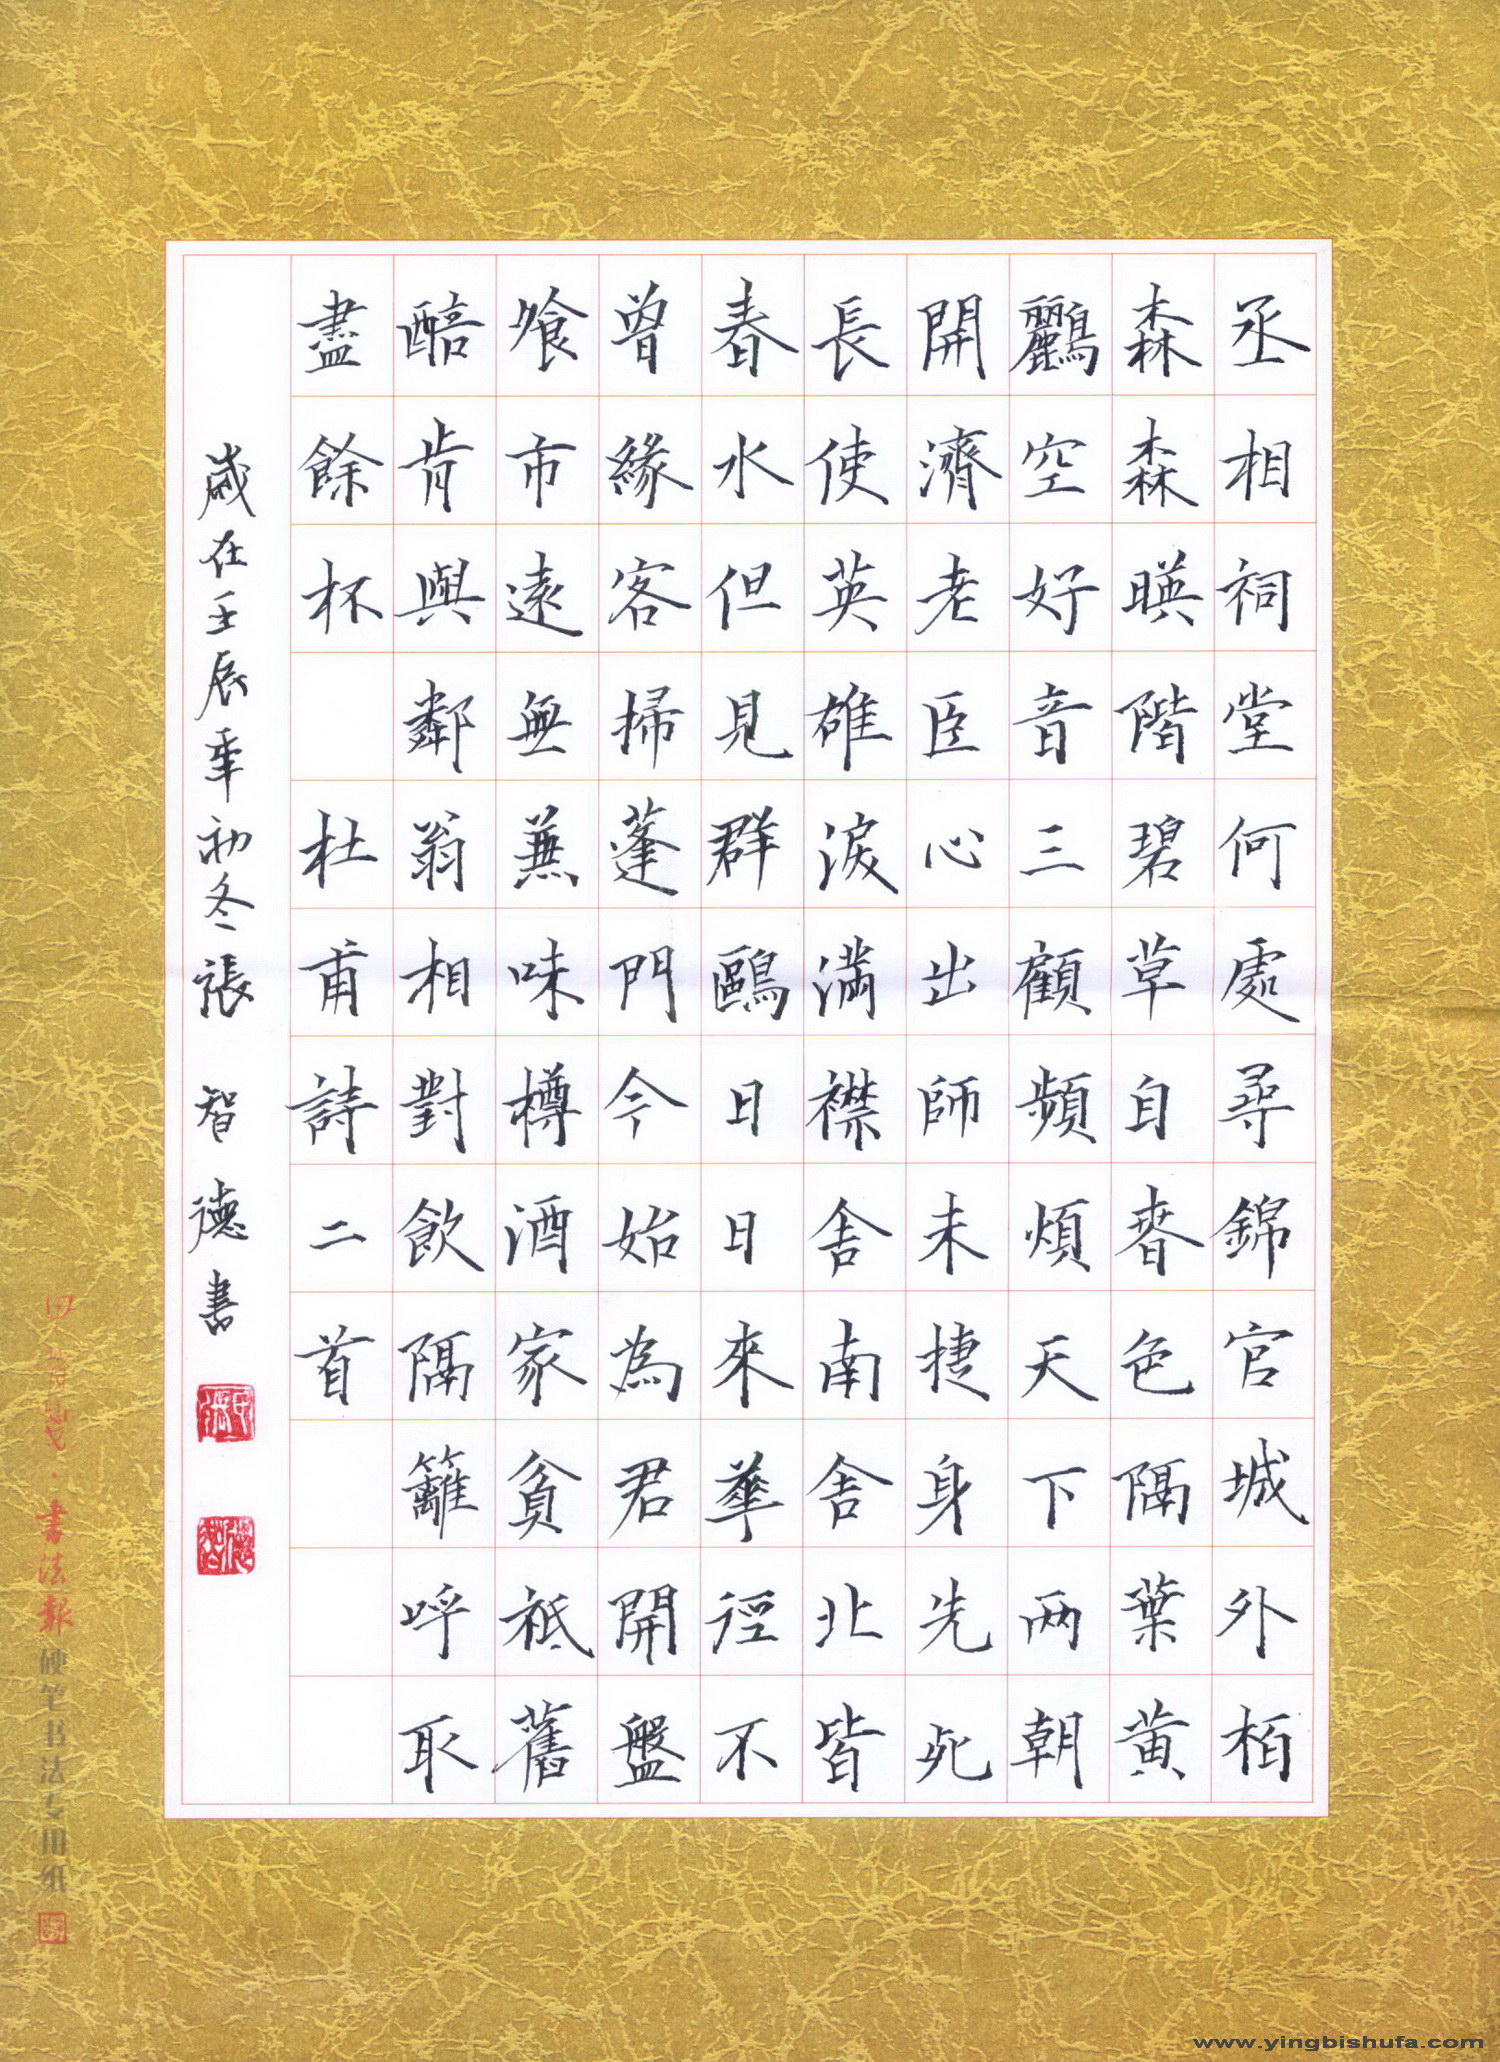 丞相祠堂何處尋錦官城外栢
森森暎階碧草自春色隔葉黄
鸝空好音三顧頻煩天下两朝
開濟老臣心出師未捷身先死
長使英雄淚満襟舍南舍北皆
春水但見群鷗日日來華徑不
曾緣客掃蓬門今始為君開盤
飧市遠無兼味樽酒家貧祗舊
醅肯與鄰翁相對飲隔籬呼取
盡餘杯 杜甫詩二首
歲在壬辰年初冬張智德書
書法報硬笔书法专用纸
www.yingbishufa.com